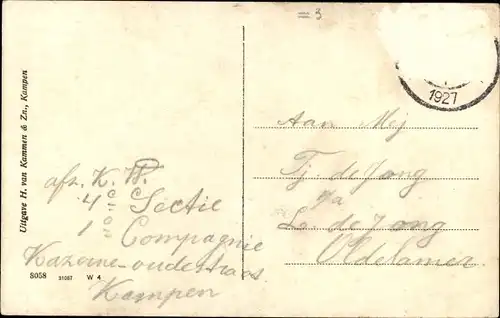 = 3
1927
Uitgave H. van Kammen & Zn., Kampen
afz. K. W.
4e Sectie
1e Compagnie
Kazerne-oudestraat
Kampen
8058 31087 W 4
Aan Mej
Tj. de Jong
p/a
L. de Jong
Oldelamer